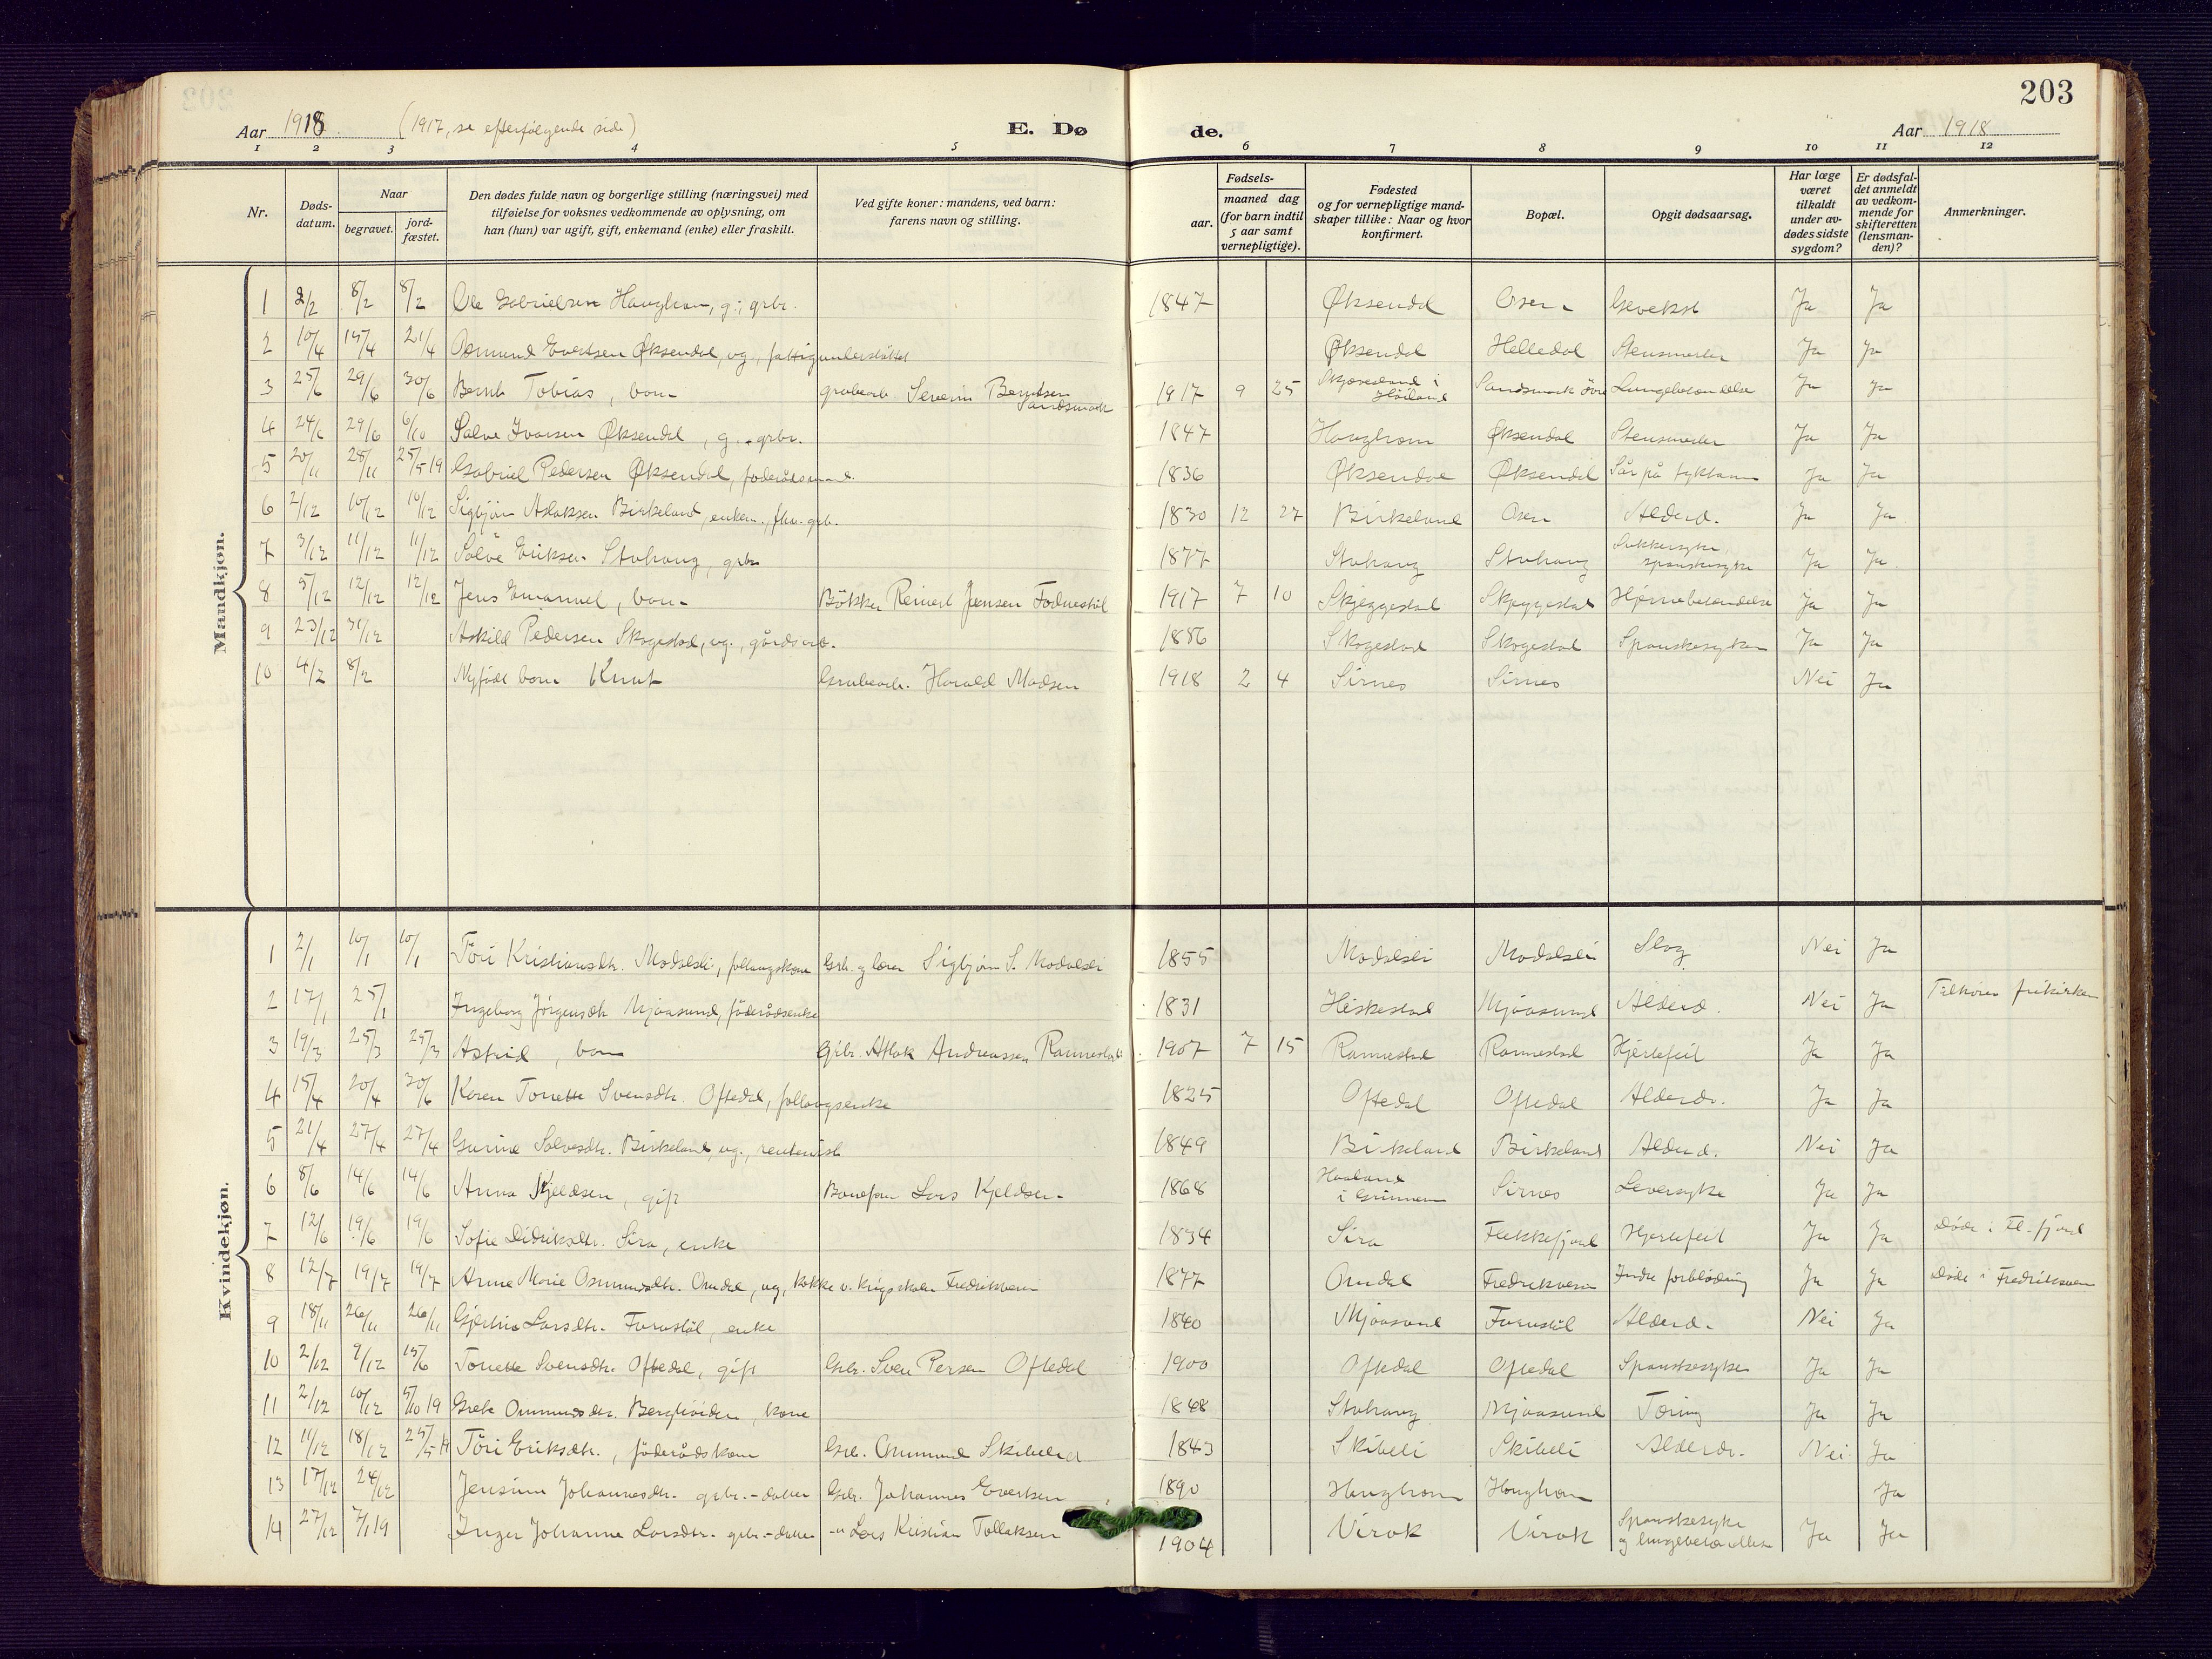 203
Aar 1918. (1917, se efterfølgende side) E. Døde. Aar 1918
1 2 3 4 5 6 7 8 9 10 11 12
Nr. Døds-datum. Naar begravet. jord-fæstet. Den dødes fulde navn og borgerlige stilling (næringsvei) med tilføielse for voksnes vedkommende av oplysning, om han (hun) var ugift, gift, enkemand (enke) eller fraskilt. Ved gifte koner: mandens, ved barn: farens navn og stilling. Fødsels- aar. maaned dag (for barn indtil 5 aar samt vernepligtige). Fødested og for vernepligtige mandskaper tillike: Naar og hvor konfirmert. Bopæl. Opgit dødsaarsag. Har læge været tilkaldt under avdødes sidste sygdom? Er dødsfaldet anmeldt av vedkommende for skifteretten (lensmanden)? Anmerkninger.
Mandkjøn.
1 2/2 8/2 8/2 Ole Gabrielsen Haughom, g., grbr. 1847 Øksendal Osen Ja Ja
2 10/4 15/4 21/4 Osmund Evertsen Øksendal, ug., fattigunderstøttet Øksendal Helledal Ja Ja
3 25/6 29/6 30/6 Bernt Tobias, barn grubearb. Severin Berntsen Sandsmark 1917 9 25 Skjæveland i Høiland Sandsmark övre Lungebetændelse Ja Ja
4 24/6 29/6 6/10 Salve Ivarsen Øksendal, g., grbr. 1847 Haughom Øksendal Ja Ja
5 20/11 28/11 25/5 19 Gabriel Pedersen Øksendal, föderådsmand. 1836 Øksendal Øksendal Sår på tyktarm Ja Ja
6 2/12 10/12 10/12 Sigbjörn Aslaksen Birkeland, enkem., fhv. grb. 1830 12 27 Birkeland Osen Alderd. Ja Ja
7 3/12 11/12 11/12 Salve Eriksen Stuhaug, grbr 1877 Stuhaug Stuhaug Sukkersyke, spanskesyke Ja Ja
8 5/12 12/12 12/12 Jens Emanuel, barn Bökker Reinert Jensen Fodnestöl 1917 7 10 Skjeggestad Skjeggestad Hjernebetændelse Ja Ja
9 23/12 31/12 Askild Pedersen Skogestad, ug., gårdsarb. 1886 Skogestad Skogestad Spanskesyken Ja Ja
10 4/2 8/2 Nyfödt barn Knut Grubearb. Harald Madsen 1918 2 4 Sirnes Sirnes Nei Ja
Kvindekjøn.
1 2/1 10/1 10/1 Töri Kristiansdtr. Modalsli, follaugskone Grb. og lærer Sigbjörn S. Modalsli 1855 Modalsli Modalsli Slag Nei Ja
2 17/1 25/1 Ingeborg Jörgensdtr. Mjaasund, föderådsenke 1831 Heskestad Mjaasund Alderd. Nei Ja Tilhörer frikirken
3 19/3 25/3 25/3 Astrid, barn Grbr. Atlak Andreassen Rannestad 1907 7 15 Rannestad Rannestad Hjertefeil Ja Ja
4 15/4 20/4 30/6 Karen Tonette Svensdtr. Oftedal, follaugsenke 1825 Oftedal Oftedal Alderdr. Ja Ja
5 21/4 27/4 27/4 Gurine Salvesdtr. Birkeland, ug., rentenist 1849 Birkeland Birkeland Alderd. Nei Ja
6 8/6 14/6 14/6 Anna Kjeldsen, gift Baneform. Lars Kjeldsen 1868 Haaland i Sirnes Leversyke Ja Ja
7 12/6 19/6 19/6 Sofie Didriksdtr. Sira, enke 1834 Sira Flekkefjord Hjertefeil Ja Ja Döde i Fl.fjord
8 12/7 19/7 19/7 Anne Marie Osmundsdtr. Omdal, ug., kokke v. krigsskolen Fredriksvern 1877 Omdal Fredriksvern Indre forblödning Ja Ja Döde i Fredriksvern
9 18/11 26/11 26/11 Gjertine Larsdtr. Furustöl, enke 1840 Mjaasund Furustöl Alderd. Nei Ja
10 2/12 9/12 15/6 Tonette Svensdtr. Oftedal, gift Grb. Sven Persen Oftedal 1900 Oftedal Oftedal Spanskesyken Ja Ja
11 2/12 10/12 5/10 19 Grete Ommundsdtr. kone 1848 Stuhaug Mjaasund Tæring Ja Ja
12 11/12 18/12 25/5 19 Töri Eriksdtr., föderådskone Grb. Ommund Skibeli 1843 Skibeli Skibeli Alderdr. Nei Ja
13 17/12 24/12 Jensine Johannesdtr. grbr.-datter Grb. Johannes Evertsen 1890 Haughom Haughom Ja
14 27/12 7/1 19 Inger Johanne Larsdtr. grbr.-datter -"- Lars Kristian Tollaksen 1904 Virak Virak Spanskesyke og lungebetændelse Ja Ja